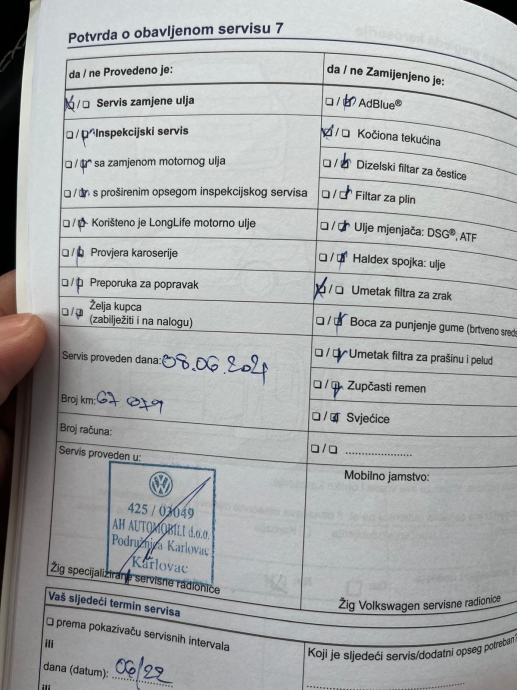 Potvrda o obavljenom servisu 7
da / ne Provedeno je:
☒/☐ Servis zamjene ulja
☐/☒ Inspekcijski servis
☐/☒ sa zamjenom motornog ulja
☐/☒ s proširenim opsegom inspekcijskog servisa
☐/☒ Korišteno je LongLife motorno ulje
☐/☒ Provjera karoserije
☐/☒ Preporuka za popravak
☐/☒ Želja kupca
(zabilježiti i na nalogu)
Servis proveden dana: 08.06.2021
Broj km: 67 079
Broj računa:
Servis proveden u:
425 / 03049
AH AUTOMOBILI d.o.o.
Podružnica Karlovac
Karlovac
Žig specijalizirane servisne radionice
da / ne Zamijenjeno je:
☐/☒ AdBlue®
☒/☐ Kočiona tekućina
☐/☒ Dizelski filtar za čestice
☐/☒ Filtar za plin
☐/☒ Ulje mjenjača: DSG®, ATF
☐/☒ Haldex spojka: ulje
☒/☐ Umetak filtra za zrak
☐/☒ Boca za punjenje gume (brtveno sreds
☐/☒ Umetak filtra za prašinu i pelud
☐/☒ Zupčasti remen
☐/☒ Svjećice
☐/☐ ....................
Mobilno jamstvo:
Žig Volkswagen servisne radionice
Vaš sljedeći termin servisa
☐ prema pokazivaču servisnih intervala
ili
dana (datum): 06/22
ili
Koji je sljedeći servis/dodatni opseg potreban?